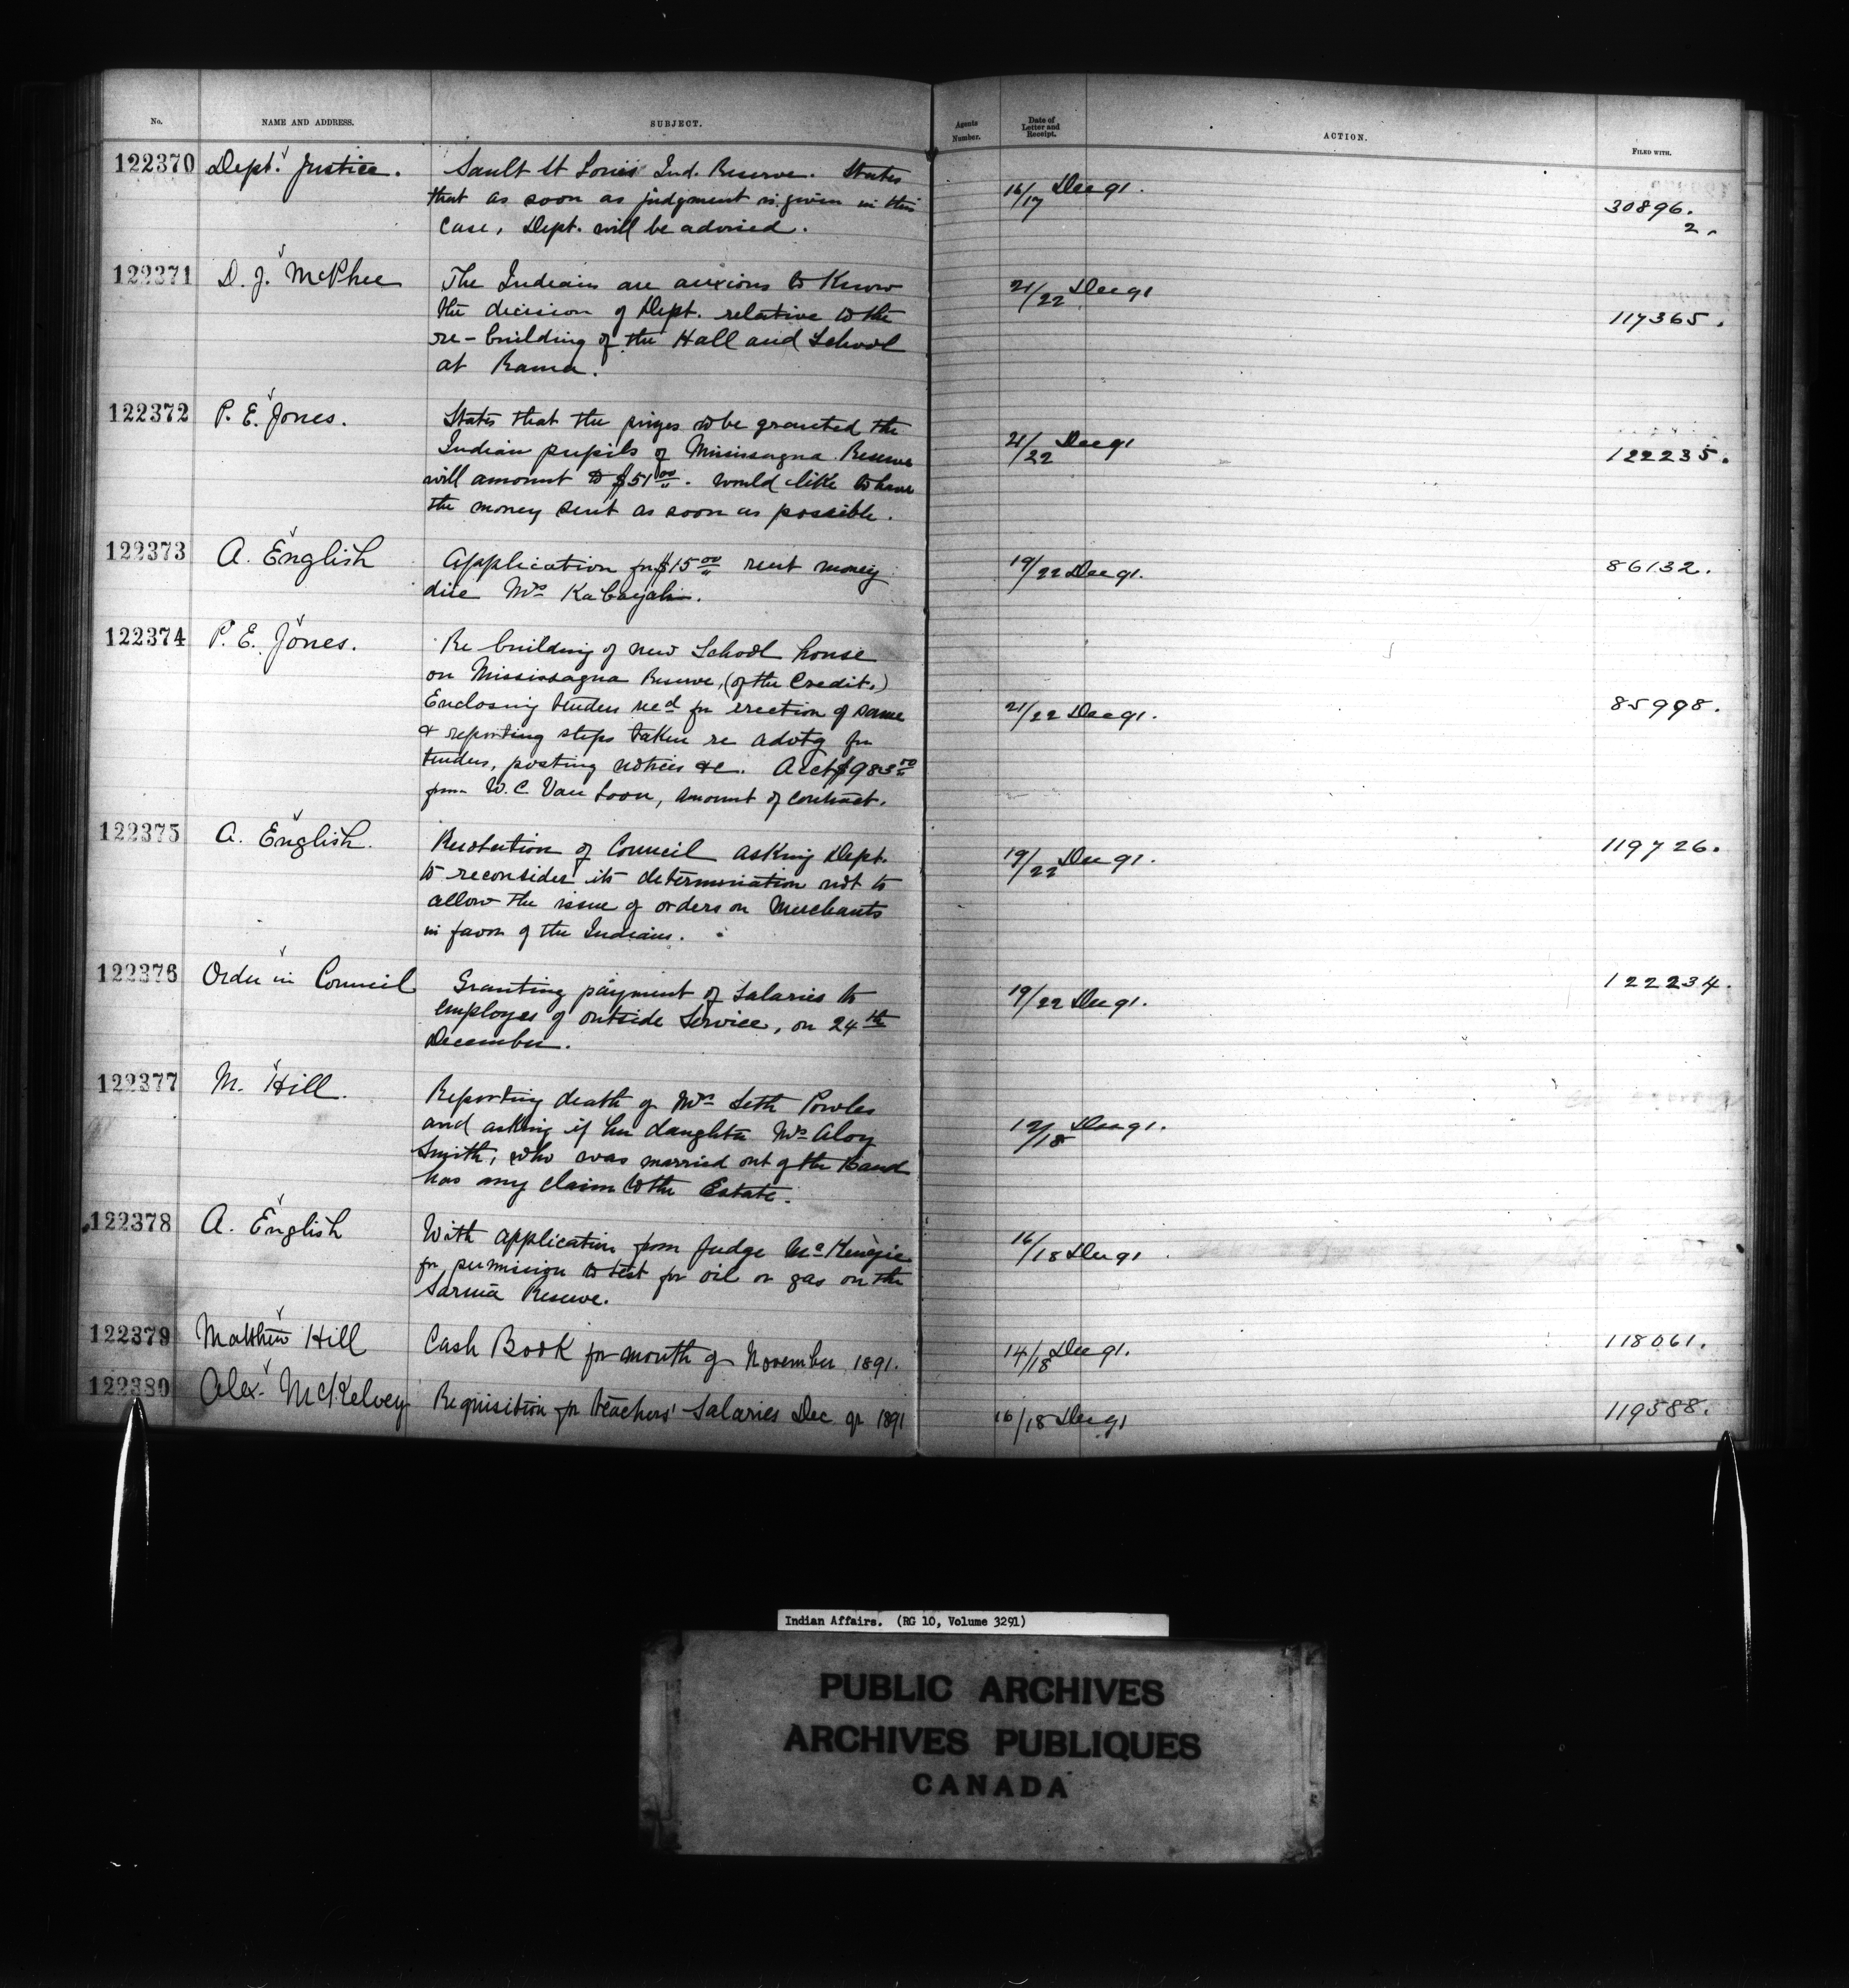 No. NAME AND ADDRESS. SUBJECT. Agents Number. Date of Letter and Receipt. ACTION. FILED WITH.
122370 Dept. Justice. Sault St Louis Ind. Reserve. States
that as soon as judgment is given in this 16/17 Dec 91. 30896.
case, Dept. will be advised. 2.
122371 D. J. McPhee The Indians are anxious to Know 21/22 Dec 91
the decision of Dept. relative to the 117365.
re-building of the Hall and School
at Rama.
122372 P. E. Jones. States that the prizes to be granted the
Indian pupils of Mississagua Reserve 21/22 Dec 91 122235.
will amount to $51 00. Would like to have
the money sent as soon as possible.
122373 A. English Application for $15 00 rent money 19/22 Dec 91. 86132.
due Mrs Kabayah.
122374 P. E. Jones. Re building of new School house
on Mississagua Reserve, (of the Credit.)
Enclosing tenders recd for erection of same 21/22 Dec 91. 85998.
& reporting steps taken re advtg for
tenders, posting notices &c. Acct $983 50
from W. C. Van Loon, amount of contract.
122375 A. English. Resolution of Council asking Dept. 119726.
to reconsider its determination not to 19/22 Dec 91.
allow the issue of orders on Merchants
in favor of the Indians.
122376 Order in Council Granting payment of Salaries to 19/22 Dec 91. 122234.
employes of outside Service, on 24th
December.
122377 M. Hill. Reporting death of Mrs Seth Powles
and asking if her daughter Mrs Aloy 12/18 Dec 91.
Smith, who was married out of the Band
has any claim to the Estate.
122378 A. English With application from Judge McKenzie 16/18 Dec 91
for permission to test for oil or gas on the
Sarnia Reserve.
122379 Matthew Hill Cash Book for month of November 1891. 14/18 Dec 91. 118061.
122380 Alex. McKelvey Requisition for teachers' Salaries Dec qr 1891 16/18 Dec 91 119588.
Indian Affairs. (RG 10, Volume 3291)
PUBLIC ARCHIVES
ARCHIVES PUBLIQUES
CANADA